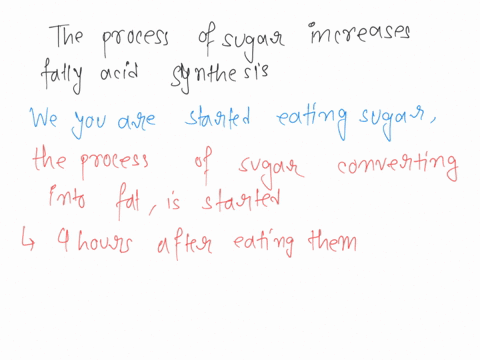 The process of sugar increases
fatty acid synthesis
We you are started eating sugar,
the process of sugar converting
into fat, is started
↳ 4 hours after eating them